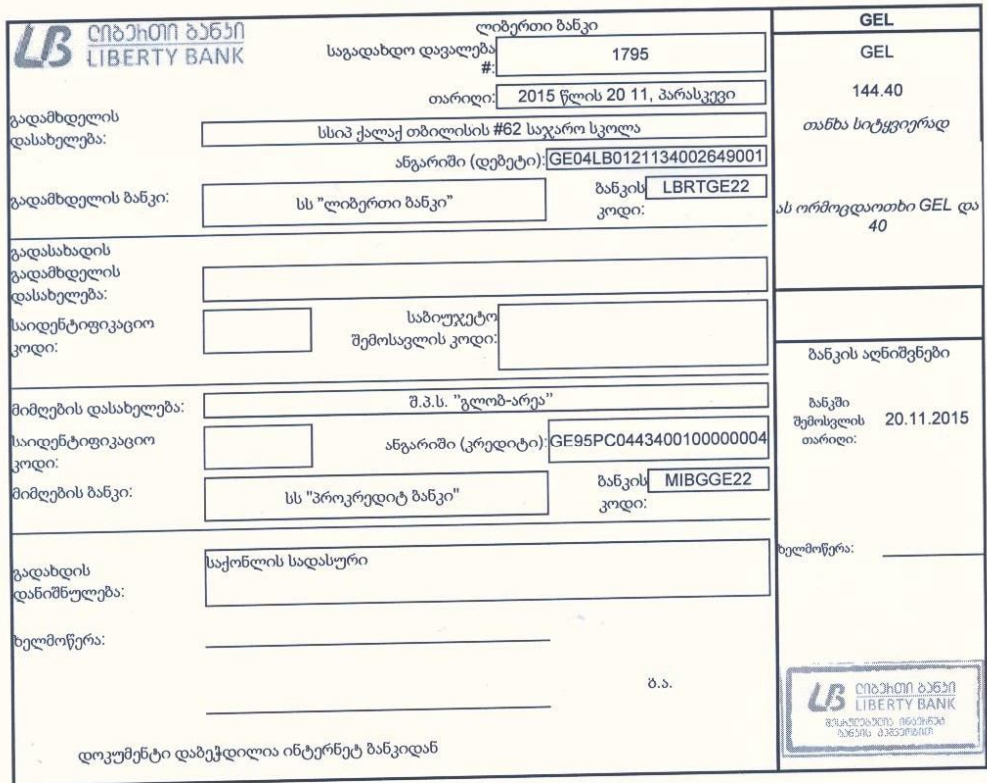 ლიბერთი ბანკი
LIBERTY BANK
ლიბერთი ბანკი
საგადახდო დავალება #: 1795
თარიღი: 2015 წლის 20 11, პარასკევი
გადამხდელის დასახელება: სსიპ ქალაქ თბილისის #62 საჯარო სკოლა
ანგარიში (დებეტი): GE04LB0121134002649001
გადამხდელის ბანკი: სს "ლიბერთი ბანკი"
ბანკის კოდი: LBRTGE22
გადასახადის გადამხდელის დასახელება:
საიდენტიფიკაციო კოდი:
საბიუჯეტო შემოსავლის კოდი:
მიმღების დასახელება: შ.პ.ს. "გლობ-არეა"
საიდენტიფიკაციო კოდი:
ანგარიში (კრედიტი): GE95PC0443400100000004
მიმღების ბანკი: სს "პროკრედიტ ბანკი"
ბანკის კოდი: MIBGGE22
გადახდის დანიშნულება: საქონლის სადასური
ხელმოწერა:
ბ.ა.
დოკუმენტი დაბეჭდილია ინტერნეტ ბანკიდან
GEL
GEL
144.40
თანხა სიტყვიერად
ას ორმოცდაოთხი GEL და
40
ბანკის აღნიშვნები
ბანკში შემოსვლის თარიღი: 20.11.2015
ხელმოწერა:
ლიბერთი ბანკი
LIBERTY BANK
შესრულებულია ინტერნეტ
ბანკის მეშვეობით